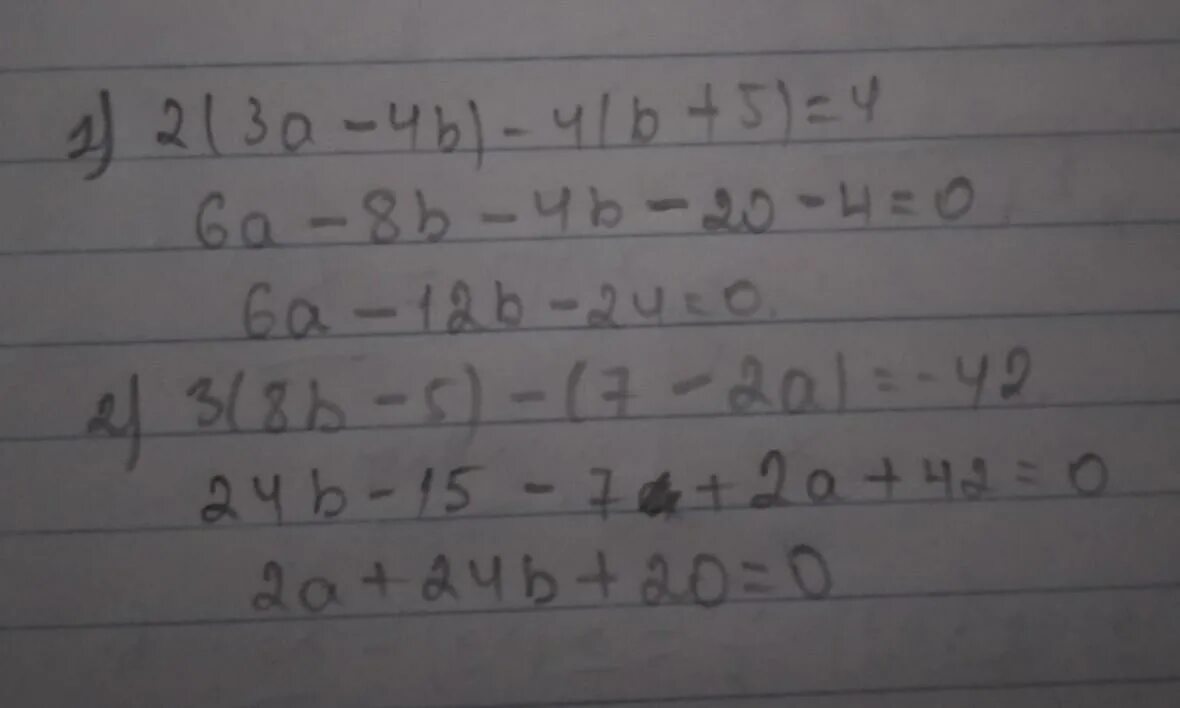 1) 2(3a - 4b) - 4(b + 5) = 4
6a - 8b - 4b - 20 - 4 = 0
6a - 12b - 24 = 0
2) 3(8b - 5) - (7 - 2a) = -42
24b - 15 - 7 + 2a + 42 = 0
2a + 24b + 20 = 0